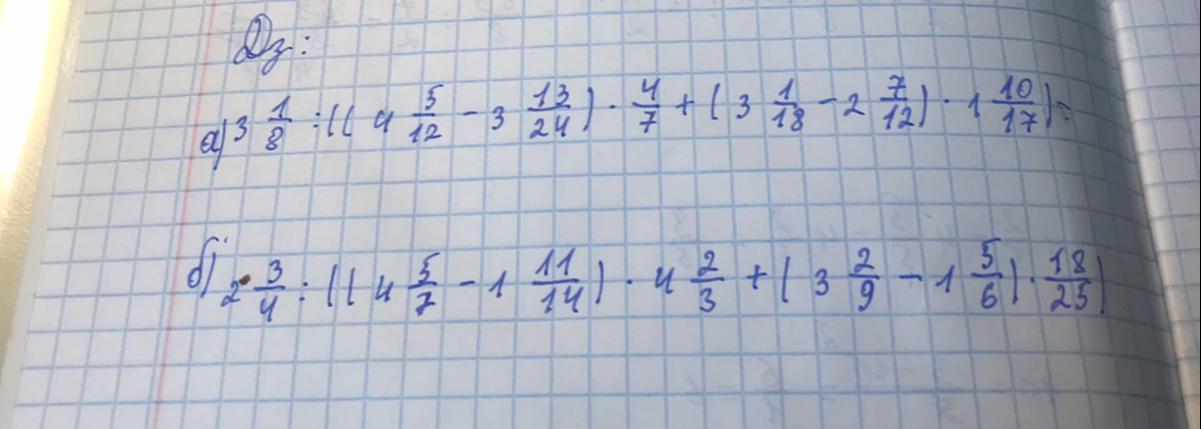 Дз:
а) 3 1/8 : ((4 5/12 - 3 13/24) · 4/7 + (3 1/18 - 2 7/12) · 1 10/17) =
б) 2 3/4 : ((4 5/7 - 1 11/14) · 4 2/3 + (3 2/9 - 1 5/6) · 18/25)